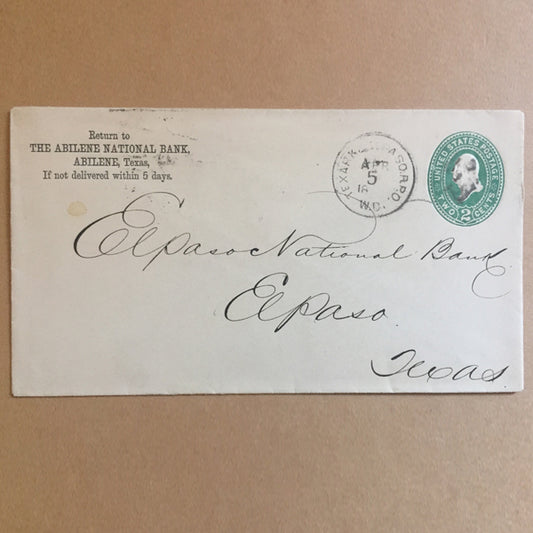 Return to
THE ABILENE NATIONAL BANK,
ABILENE, Texas,
If not delivered within 5 days.
APR
5
W.D.
UNITED STATES POSTAGE
TWO 2 CENTS
El paso National Bank
El paso
Texas